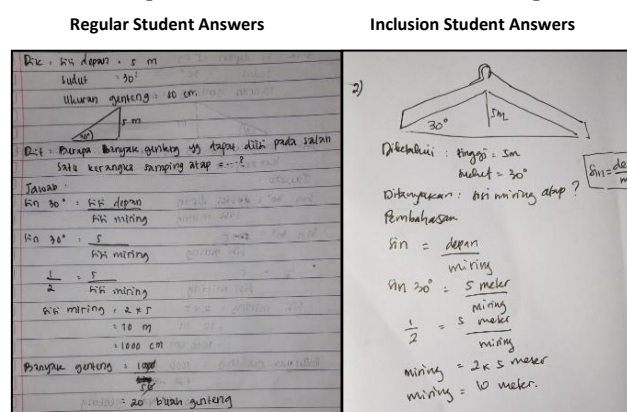 Regular Student Answers
Inclusion Student Answers
Dik : sisi depan = 5 m
sudut = 30°
Ukuran genteng =
5 m
30°
Dit = Berapa Banyak genteng yg dapat diisi pada salah
satu kerangka samping atap = ...?
Jawab :
sin 30° = sisi depan
sisi miring
sin 30° = 5
sisi miring
1/2 = 5
sisi miring
sisi miring = 2 x 5
= 10 m
= 1000 cm
Banyak genteng = 1000
50
= 20 buah genteng
2)
30°
5m
Diketahui : tinggi = 5m
sudut = 30°
Ditanyakan : sisi miring atap ?
Sin = de
m
Pembahasan
Sin = depan
miring
Sin 30° = 5 meter
miring
1/2 = 5 meter
miring
miring = 2 x 5 meter
miring = 10 meter.